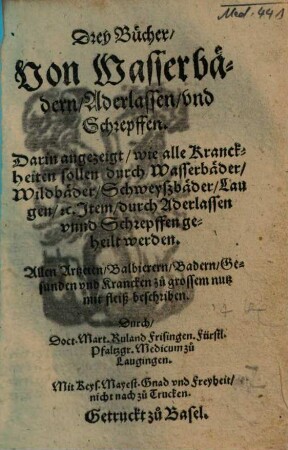 Med. 441
Drey Bücher/
Von Wasserbä-
dern/Aderlassen/vnd
Schrepffen.
Darin angezeigt/wie alle Kranck-
heiten sollen durch Wasserbäder/
Wildbäder/Schweyßbäder/Lau
gen/ ꝛc. Item/durch Aderlassen
vnnd Schrepffen ge-
heilt werden.
Allen Artzeten/Balbierern/Badern/Ge-
sunden vnd Krancken zů grossem nutz
mit fleiß beschriben.
Durch/
Doct. Mart. Ruland Frisingen. Fürstl.
Pfaltzgr. Medicum zů
Laugingen.
Mit Keys. Mayest. Gnad vnd Freyheit/
nicht nach zů Trucken.
Getruckt zů Basel.